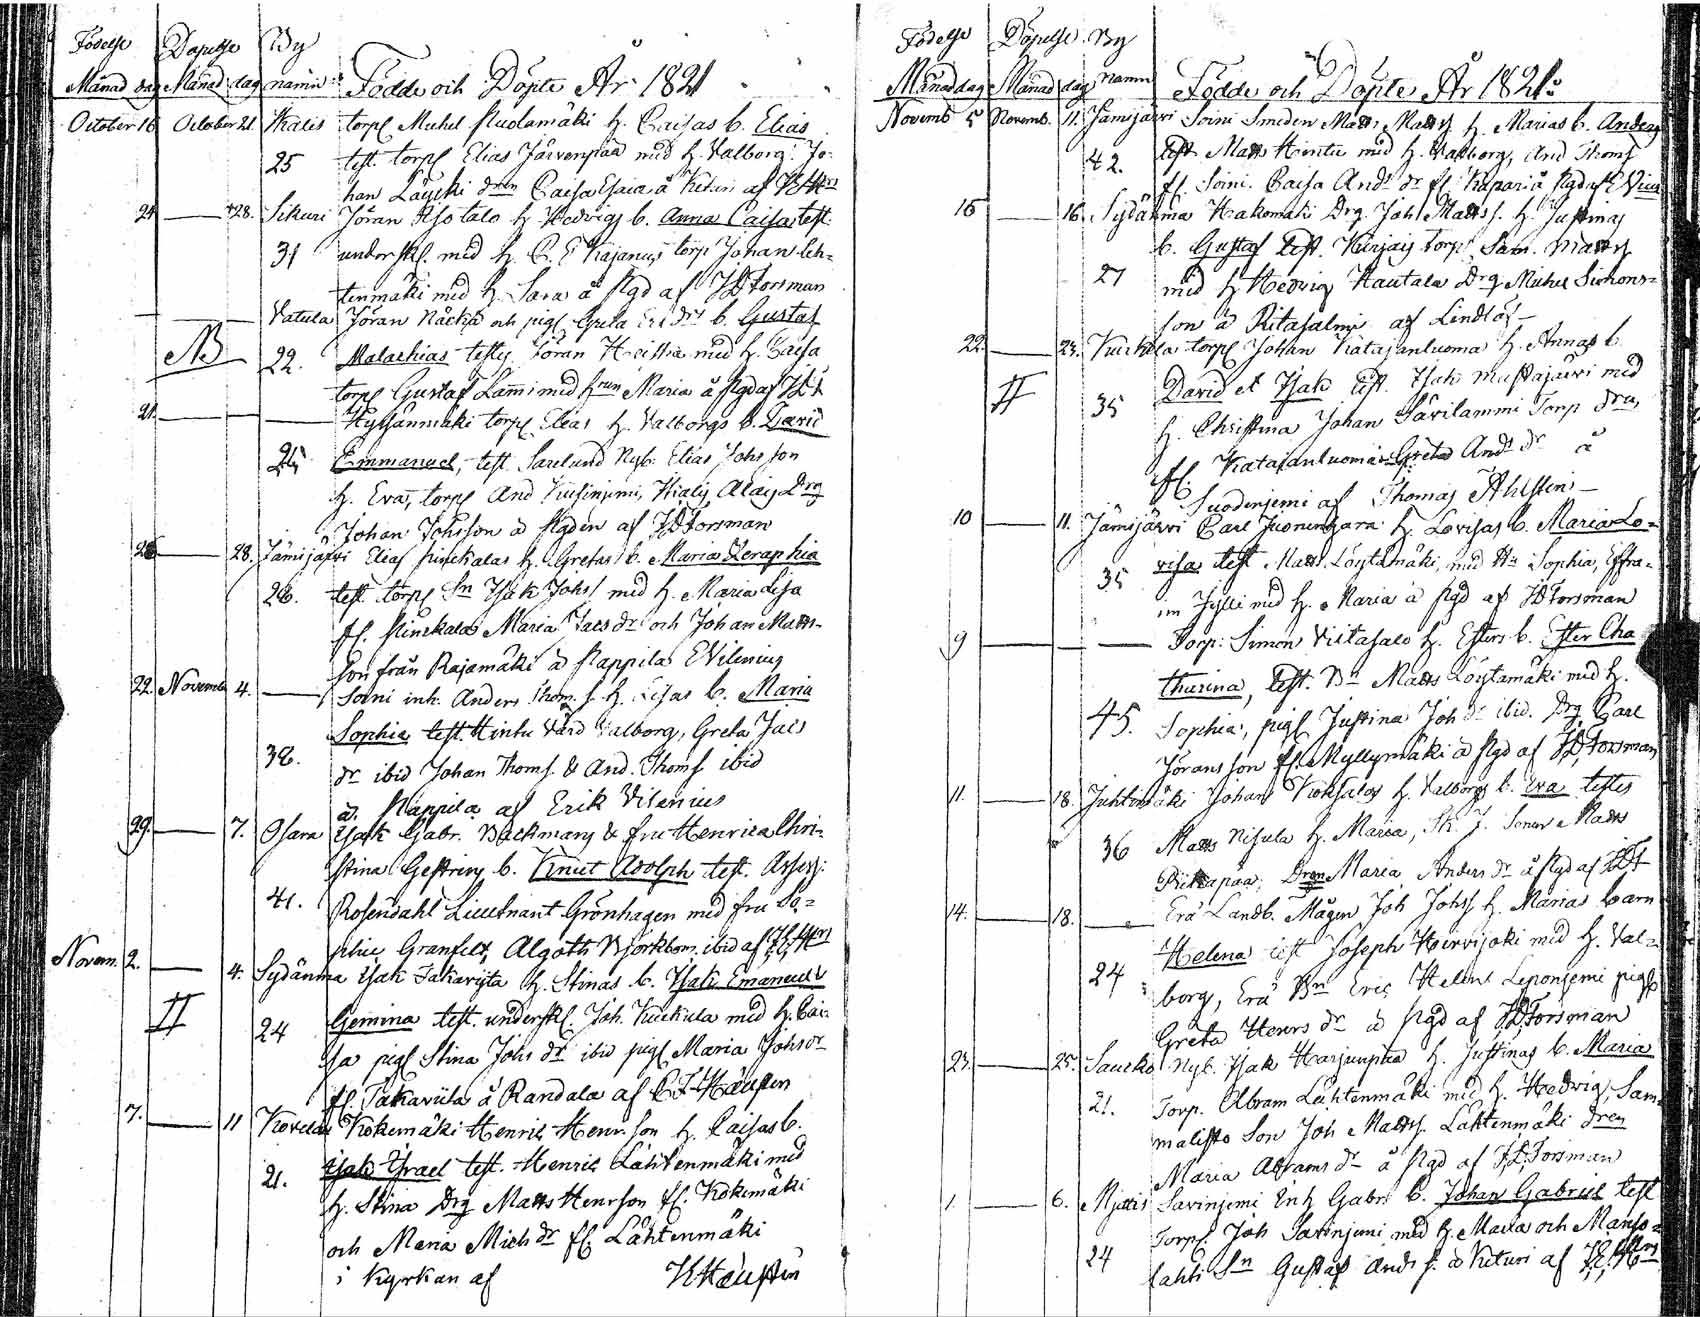 Födelse Döpelse By
Månad dag Månad dag namn Födde och Döpte År 1821
October 16 October 21. torp Michel Ruolamäki h. Caisas b. Elias
25 test. torp Elias Järvenpää med h. Valborg. Jo-
han Caisa Esaia å Kituri af
24 28. Sikuri Jöran Isotalo h Hedvigs b. Anna Caisa test.
31 underskr. med h. C. E Kajanus torp Johan Leh-
tenmäki med h. Sara å Pgd af J D Forsman
Vatula Jöran Näckä och pig Greta Ers dr b. Gustaf
NB 22. Malachias testes Jöran med h. Caisa
torp Gustaf Lammi med hrun Maria å Pgd af
21. Hyhjänmäki torp Elias h. Valborgs b. David
25 Emmanuel, test. Sarelund Nyb. Elias Johsson
h. Eva, torp And Drg
Johan Johsson å Pgden af J D Forsman
28. Jämijärvi Elias h. Gretas b. Maria Seraphia
28. test. torp Sn Isak Johs med h. Maria Lisa
Maria Jacs dr och Johan Matts-
son från Rajamäki å Kappila E Vilenius
22. Novemb 4. Soini inh. Anders Thoms. h. Lisas b. Maria
Sophia test. Hintu Värd Valborg, Greta Jacs
38. dr ibid Johan Thoms. & And. Thoms ibid
å Kappila af Erik Vilenius
29. 7. Osara Isak Gabr. Backmans & fru Henrica Chri-
stina b. Knut Adolph test. Assess:
41. Rosendahl Lieutnant Grönhagen med fru So-
phie Granfelt, Algoth Björkbom ibid af
Novem. 2. 4. Sydänma Isak Takaviita h. Stinas b. Isak Emanuel
II 24 Gemina test. underskr. Joh. Kuickula med h. Cai-
sa pig Stina Johs dr ibid pig Maria Johs dr
fr. Takaviita å Randala af
7. 11 Kokemäki Henric Henr. son h. Caisas b.
21. Isak Israel test. Henric Lähtenmäki med
h. Stina Drg Matts Henrson fr. Kokemäki
och Maria Mich dr fr. Lähtenmäki
i Kyrkan af
Födelse Döpelse By
Månad dag Månad dag namn Födde och Döpte År 1821.
Novemb 5 Novemb. 11. Jämijärvi Soini Smeden Matts Matts h. Marias b. Anders
42. test. Matts Hintu med h. Valborg, And Thoms
fr. Soini. Caisa Ands dr fr. å Pgd af
15 16. Sydänma Hakomäki Drg. Joh Matts s. h. Justinas
b. Gustaf test. torp Sam. Matts
27 med h Hedvig Rautala Drg Michel Simons-
son å Ritasalmi af Lindlöf
22. 23. Kuickula torp Johan Katajanluoma h. Annas b.
David et Isak test. Isak Mustajärvi med
II 35 h. Christina Johan Särilammi Torp dren
fr. Katajanluoma Greta Ands dr å
Suodenjemi af Thomas Ahlstén
10 11. Jämijärvi Carl h. Lovisas b. Maria Lo-
35 visa test Matts Löytämäki, med Hu Sophia, Effra-
im Jylli med h. Maria å Pgd af J D Forsman
9 Torp. Simon Viitasalo h. Esters b. Ester Cha
tharina, test. Bn Matts Löytämäki med h.
45. Sophia, pig Justina Joh dr ibid. Drg Carl
Jöransson fr. Myllymäki å Pgd af J D Forsman
11. 18. Juhtimäki Johan h. Valborgs b. Eva testes
36 Matts Nisula h. Maria, Sonen Matts
Dren Maria Anders dr å Pgd af
14. 18. Erä Landb. Mågen Joh Johss h. Marias barn
Helena test Joseph Hirvijoki med h. Val-
24 borg, Erä Bn Eric Leponjemi pig
Greta Henrs dr å Pgd af J D Forsman
23. 25. Saucko Nyb. Isak Harjunpää h. Justinas b. Maria
21. Torp. Abram Lähtenmäki med h. Hedvig, Sam-
malisto Son Joh Matts. Lähtenmäki dren
Maria Abrams dr å Pgd af J D Forsman
1. 6. Mjettis Savinjemi Enk Gabr. b. Johan Gabriel test
Torp Joh Savinjemi med h. Maria och Manso-
24 lahti Sn Gustaf Ands s. å Kituri af